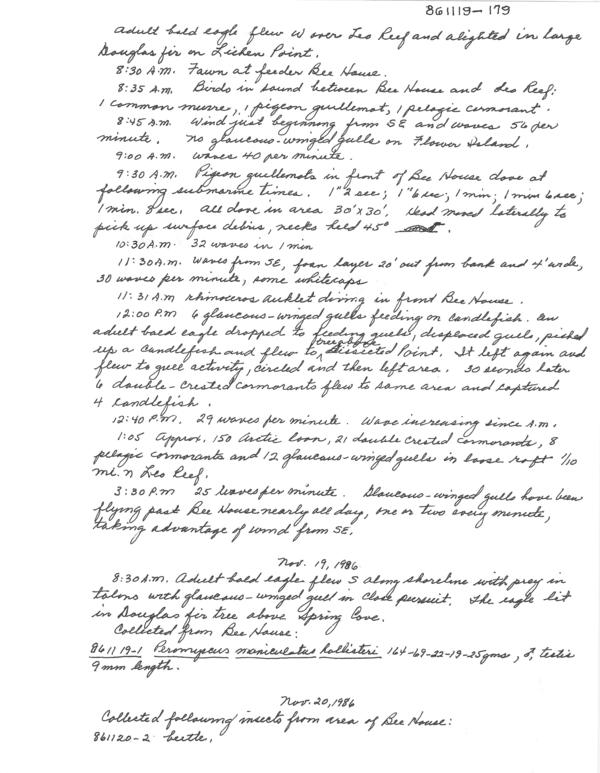 861119-179
adult bald eagle flew W over Leo Reef and alighted in large
Douglas fir on Lichen Point.
8:30 A.M. Fawn at feeder Bee House.
8:35 A.M. Birds in sound between Bee House and Leo Reef:
1 common murre, 1 pigeon guillemot, 1 pelagic cormorant.
8:45 A.M. Wind just beginning from SE and waves 56 per
minute. No glaucous-winged gulls on Flower Island.
9:00 A.M. waves 40 per minute.
9:30 A.M. Pigeon guillemots in front of Bee House dove at
following submarine times. 1" 2 sec; 1" 6 sec; 1 min; 1 min 6 sec;
1 min. 8 sec. All dove in area 30'x30'. Head moved laterally to
pick up surface debris, necks held 45°
10:30 A.M. 32 waves in 1 min
11:30 A.M. waves from SE, foam layer 20' out from bank and 4' wide,
30 waves per minute, some whitecaps
11:31 A.M rhinoceros auklet diving in front Bee House.
12:00 P.M 6 glaucous-winged gulls feeding on candlefish. An
adult bald eagle dropped to feeding gulls, displaced gulls, picked
up a candlefish and flew to tree above Dissected Point. It left again and
flew to gull activity, circled and then left area. 30 seconds later
6 double-crested cormorants flew to same area and captured
4 candlefish.
12:40 P.M. 29 waves per minute. Wave increasing since A.M.
1:05 Approx. 150 Arctic loon, 21 double crested cormorants, 8
pelagic cormorants and 12 glaucous-winged gulls in loose raft 1/10
mi. N Leo Reef.
3:30 P.M 25 waves per minute. Glaucous-winged gulls have been
flying past Bee House nearly all day, one or two every minute,
taking advantage of wind from SE.
Nov. 19, 1986
8:30 A.M. Adult bald eagle flew S along shoreline with prey in
talons with glaucous-winged gull in close pursuit. The eagle lit
in Douglas fir tree above Spring Cove.
Collected from Bee House:
861119-1 Peromyscus maniculatus hollisteri 164-69-22-19-25gms, ♂, testis
9mm length.
Nov. 20, 1986
Collected following insects from area of Bee House:
861120-2 beetle.